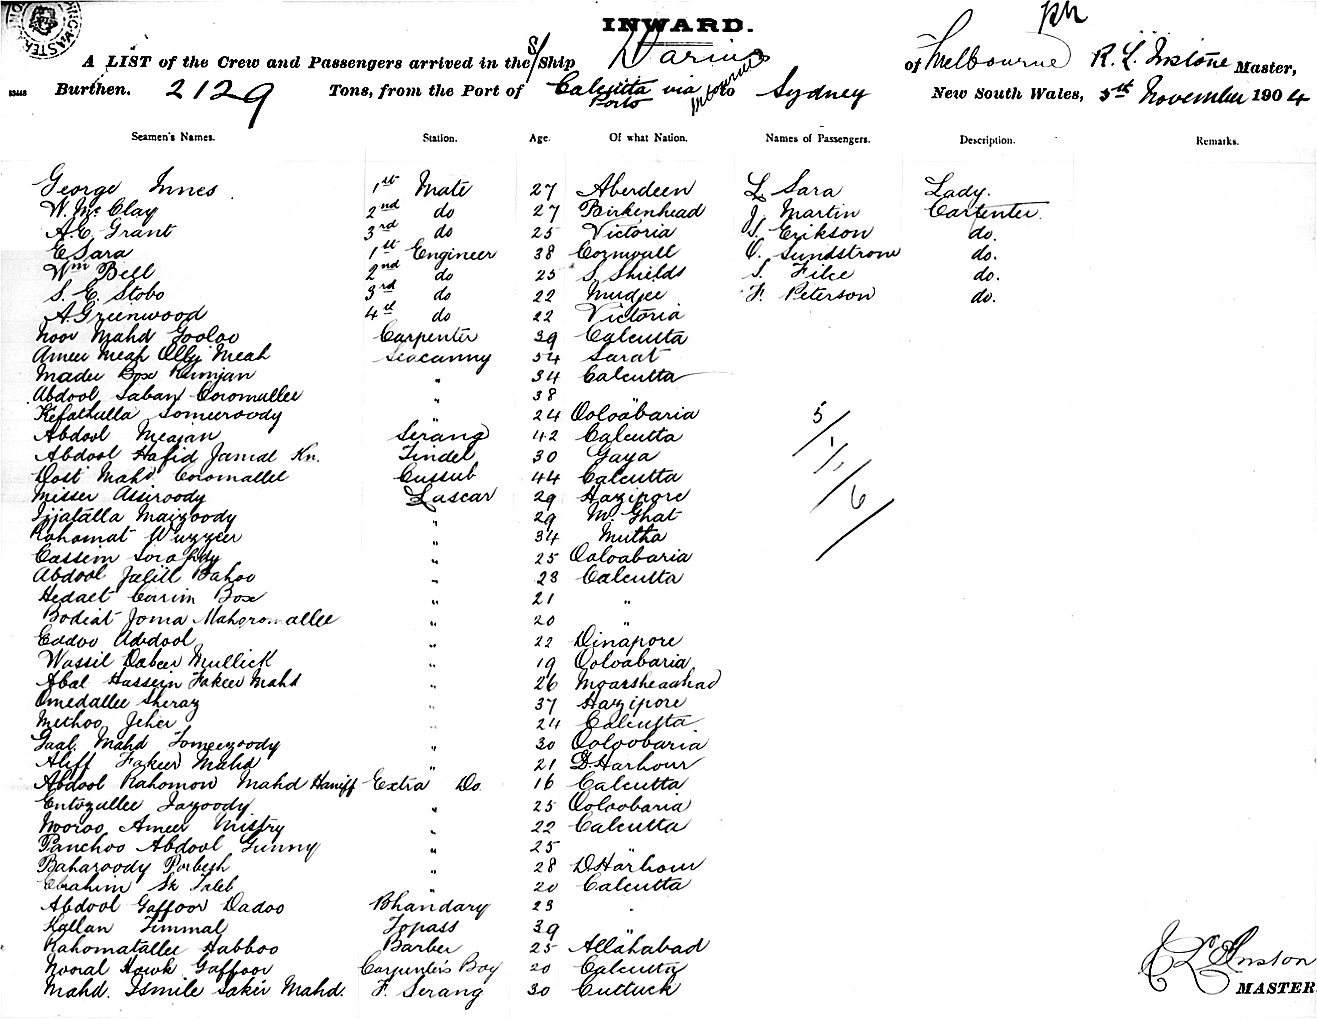 INWARD.
A LIST of the Crew and Passengers arrived in the S/Ship Darius of Melbourne R. L. Instone Master,
Burthen. 2129 Tons, from the Port of Calcutta via Ports Melbourne to Sydney New South Wales, 5th November 1904
Seamen's Names. Station. Age. Of what Nation. Names of Passengers. Description. Remarks.
George Innes 1st Mate 27 Aberdeen L Sara Lady.
W. McClay 2nd do 27 Birkenhead J Martin Carpenter.
A.C. Grant 3rd do 25 Victoria Erikson do.
E Sara 1st Engineer 38 Cornwall O. Sundstrom do.
Wm Bell 2nd do 25 S. Shields S. Filce do.
S. E. Stobo 3rd do 22 Mudgee F. Peterson do.
A. Greenwood 4th do 22 Victoria
Noor Mahd Gooloo Carpenter 39 Calcutta
Ameer Meah Olly Meah Seacunny 54 Sarat
Mader Box Rumjan " 34 Calcutta
Abdool Saban Coromallee " 38 "
Kefathulla Someeroody " 24 Ooloabaria
Abdool Meajan Serang 42 Calcutta
Abdool Hafid Jamal Kn. Tindel 30 Gaya
Dost Mahd Coromallee Cussub 44 Calcutta
Misser Assiroody Lascar 29 Hazipore
Ijjatalla Maizoody " 29 M. Ghat
Rahomat Wuzzeer " 34 Mutha
Cassim " 25 Ooloabaria
Abdool Jalill Bahoo " 28 Calcutta
Hedaet Corim Box " 21 "
Bodiat Joma " 20 "
Eddoo Abdool " 22 Dinapore
Wassil Dabeer Mullick " 19 Ooloabaria
Abal Hassein Fakeer Mahd " 26
Omedallee Sheraz " 37 Hazipore
Methoo Jeher " 24 Calcutta
Gaal. Mahd Tomeezoody " 30 Ooloobaria
Aliff Fakeer Mahd " 21 D. Harbour
Abdool Rahomon Mahd Haniff Extra Do 16 Calcutta
Entozallee Jazoody " 25 Ooloobaria
Nooroo Ameer Mistry " 22 Calcutta
Panchoo Abdool Gunny " 25 "
Baharoody Porbesh " 28 D Harbour
Ebrahim Sk Taleb " 20 Calcutta
Abdool Gaffoor Dadoo Bhandary 23 "
Kallan Jimmal Topass 39 "
Rahomatallee Habboo Barber 25 Allahabad
Nooral Howk Gaffoor Carpenter's Boy 20 Calcutta
Mahd. Ismile Sakir Mahd. F. Serang 30 Cuttuck
5/
1/1/
/6/
R L Inston
MASTER